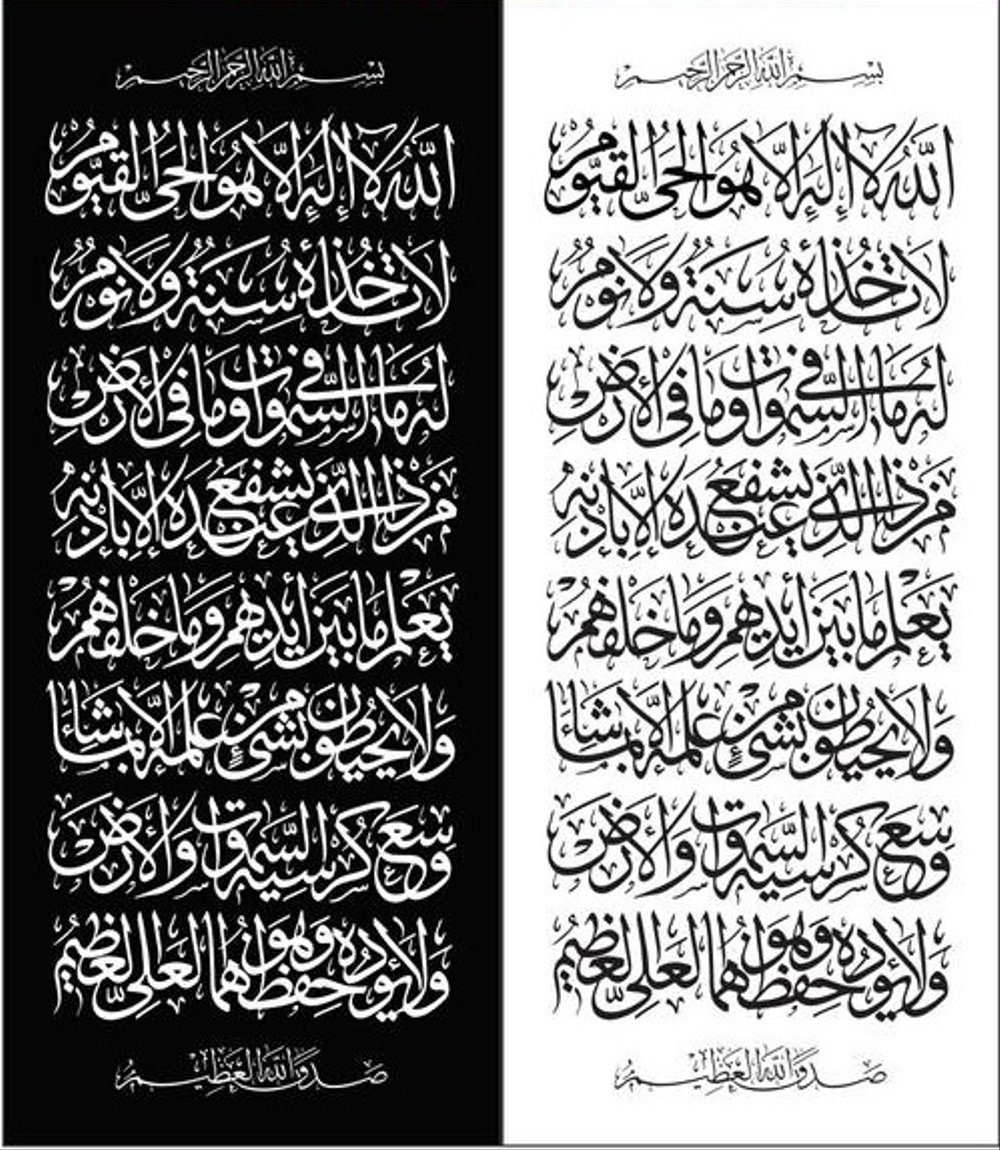 بسم الله الرحمن الرحيم
الله لا إله إلا هو الحي القيوم
لا تأخذه سنة ولا نوم
له ما في السموات وما في الأرض
من ذا الذي يشفع عنده إلا بإذنه
يعلم ما بين أيديهم وما خلفهم
ولا يحيطون بشيء من علمه إلا بما شاء
وسع كرسيه السموات والأرض
ولا يؤوده حفظهما وهو العلي العظيم
صدق الله العظيم
بسم الله الرحمن الرحيم
الله لا إله إلا هو الحي القيوم
لا تأخذه سنة ولا نوم
له ما في السموات وما في الأرض
من ذا الذي يشفع عنده إلا بإذنه
يعلم ما بين أيديهم وما خلفهم
ولا يحيطون بشيء من علمه إلا بما شاء
وسع كرسيه السموات والأرض
ولا يؤوده حفظهما وهو العلي العظيم
صدق الله العظيم